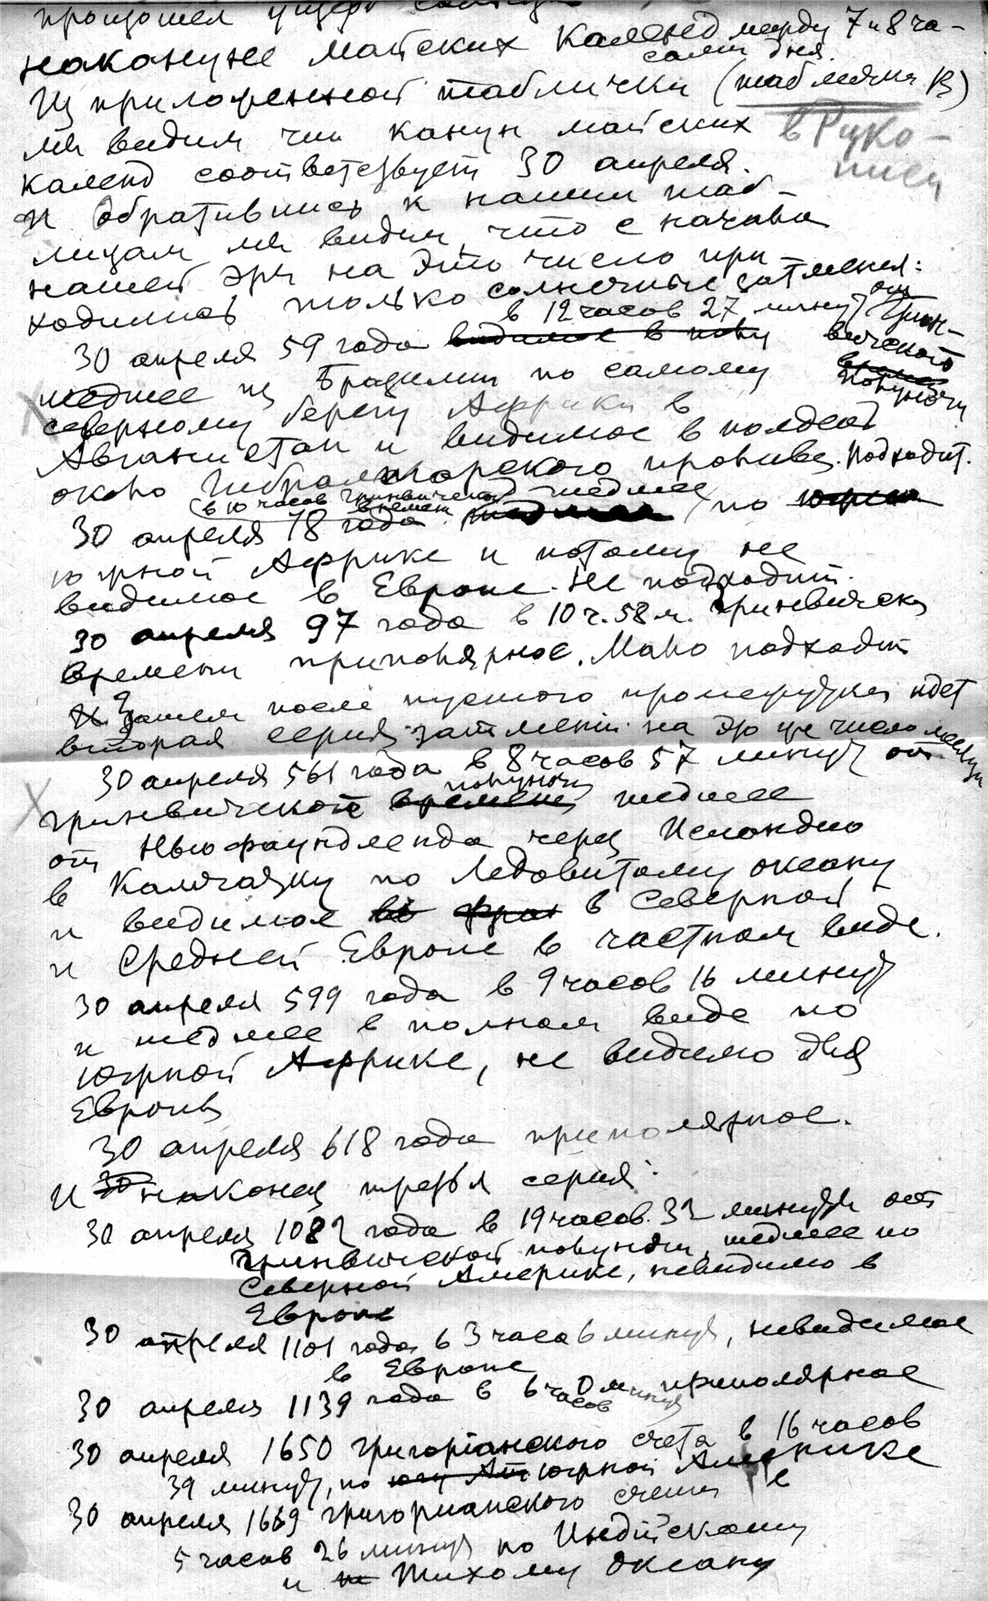 произошел ущерб солнца
накануне майских Календ между 7 и 8 ча-
сами дня.
Из приложенной таблички (табличка В)
мы видим что канун майских
в Руко-
писи
календ соответствует 30 апреля.
И обратившись к нашим таб-
лицам мы видим, что с начала
нашей эры на это число при-
ходились только солнечные затмения:
30 апреля 59 года в 12 часов 27 минут от Грин-
вичской полуночи
шедшее из Бразилии по самому
северному берегу Африки в
Авганистан и видимое в полдень
около Гибралтарского пролива. Подходит.
30 апреля 78 года (в 10 часов гринвической времени) шедшее по
южной Африке и потому не
видимое в Европе. Не подходит.
30 апреля 97 года в 10 ч. 58 м. Гринвическ
времени приполярное. Мало подходит
Затем после пустого промежутка идет
вторая серия затмений на то же число месяца
30 апреля 561 года в 8 часов 57 минут от
гринвической полуночи шедшее
от Ньюфаундленда через Исландию
в Камчатку по Ледовитому океану
и видимое в Северной
и Средней Европе в частном виде.
30 апреля 599 года в 9 часов 16 минут
и шедшее в полном виде по
Южной Африке, не видимо для
Европы
30 апреля 618 года приполярное.
И наконец третья серия:
30 апреля 1082 года в 19 часов 32 минуты от
Гринвической полуночи, шедшее по
Северной Америке, невидимо в
Европе
30 апреля 1101 года в 3 часа 6 минут, невидимое
в Европе
30 апреля 1139 года в 6 часов 0 минут приполярное
30 апреля 1650 григорианского счета в 16 часов
39 минут, по южной Америке
30 апреля 1669 григорианского счета в
5 часов 26 минут по Индийскому
и Тихому океану